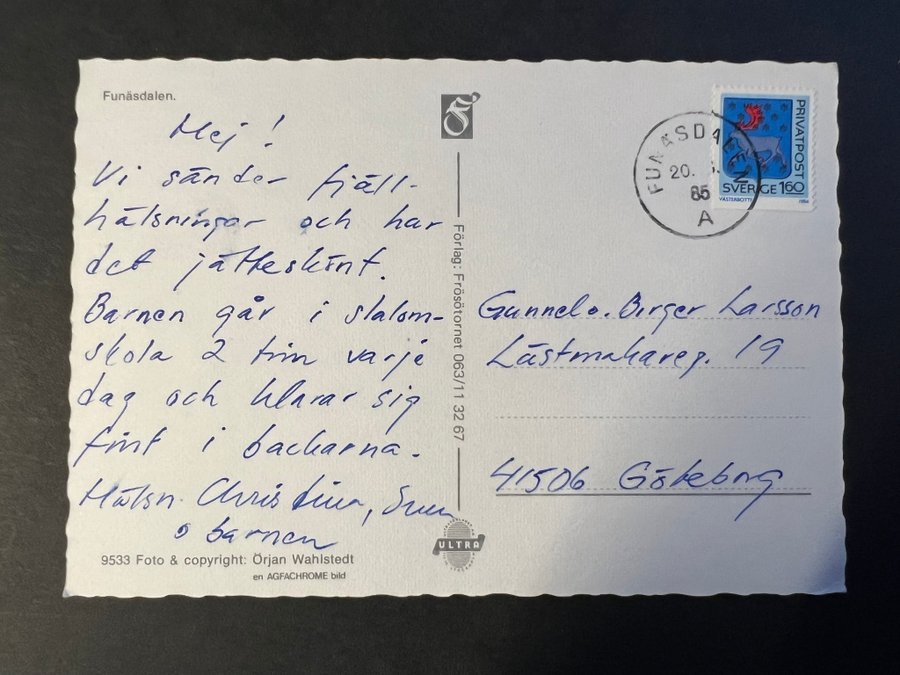 Funäsdalen.
Hej!
Vi sänder fjäll-
hälsningar och har
det jätteskönt.
Barnen går i slalom-
skola 2 tim varje
dag och klarar sig
fint i backarna.
Hälsn. Christina,
o barnen
9533 Foto & copyright: Örjan Wahlstedt
en AGFACHROME bild
Förlag: Frösötornet 063/11 32 67
ULTRA
FUNÄSDALEN
20.
85
A
PRIVATPOST
SVERIGE 160
VÄSTERBOTTEN
1984
Gunnel o. Birger Larsson
Lästmakareg. 19
41506 Göteborg